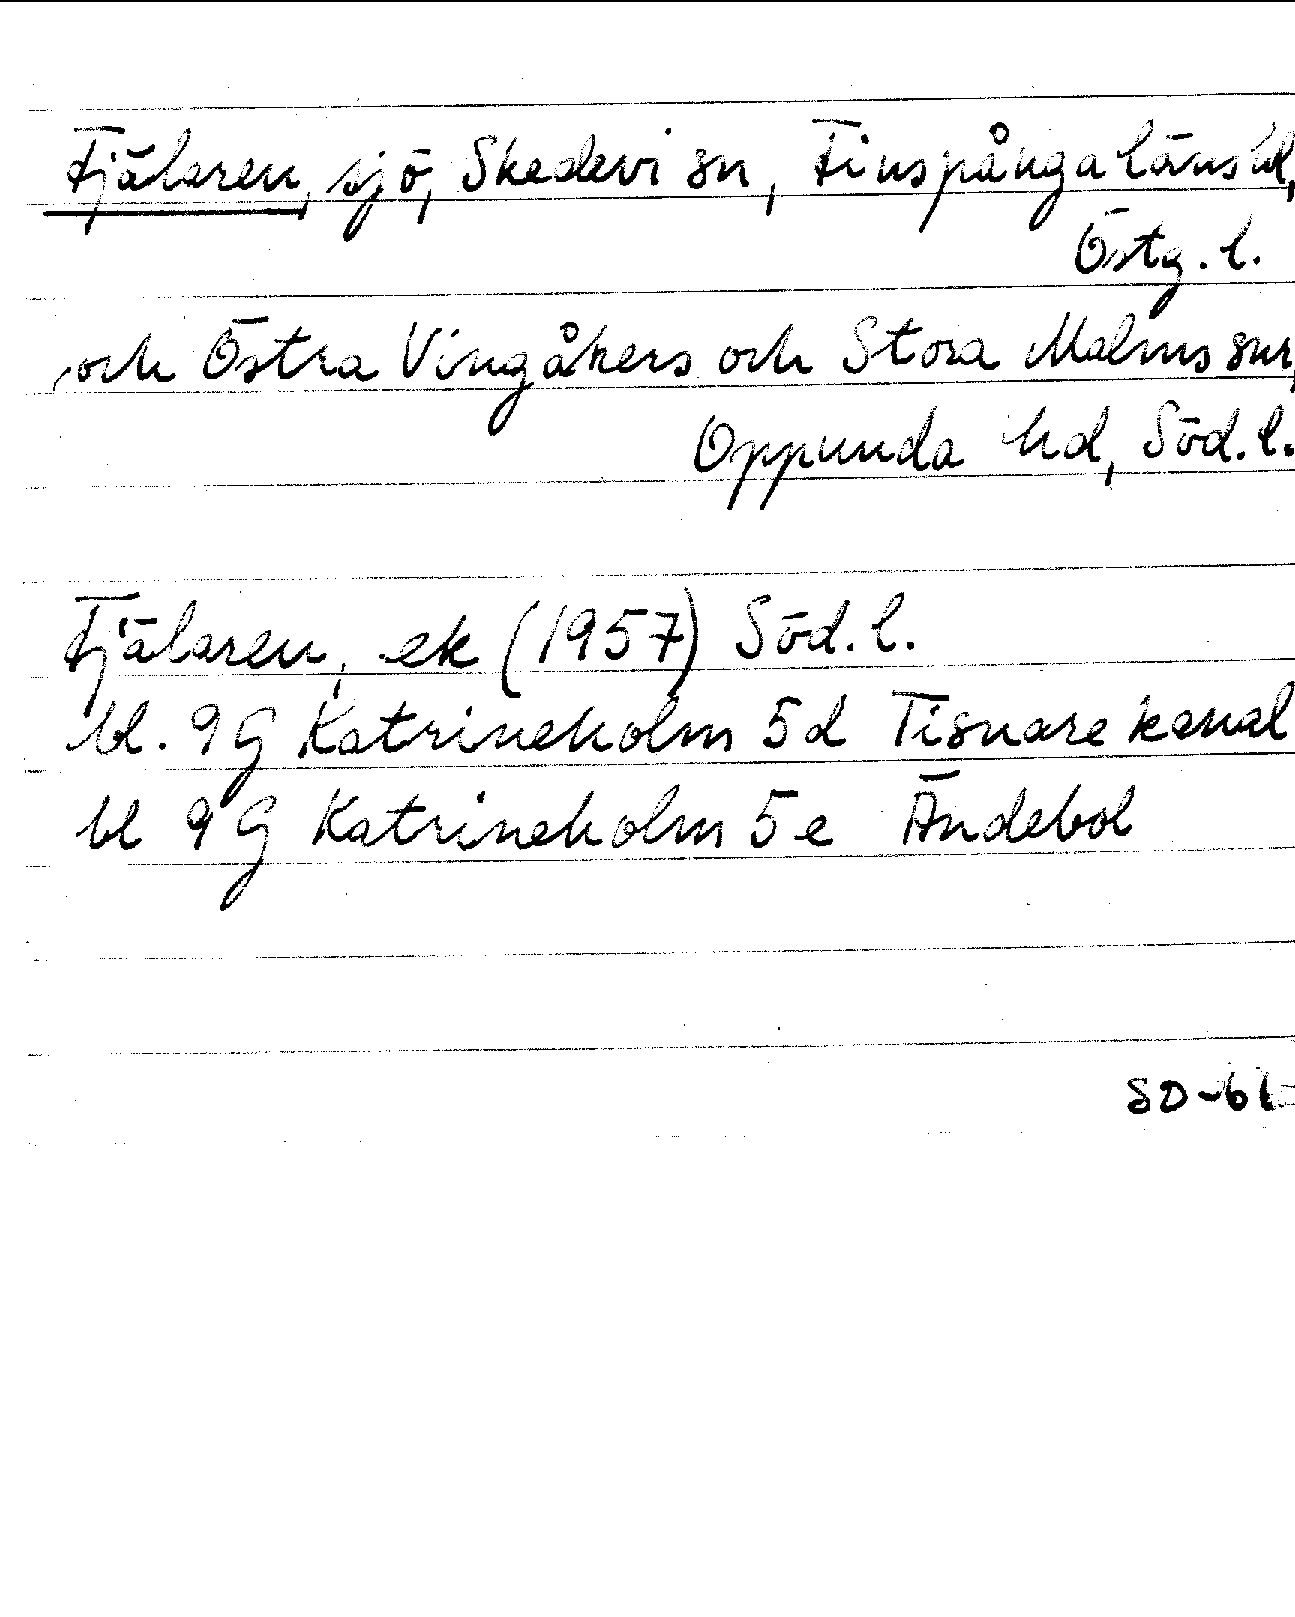 Fjälaren, sjö, Skedevi sn, Finspånga läns hd,
Östg. l.
och Östra Vingåkers och Stora Malms snr,
Oppunda hd, Söd. l.
Fjälaren, ek (1957) Söd. l.
bl. 9G Katrineholm 5d Tisnare kanal
bl 9G Katrineholm 5e Ändebol
SD-61